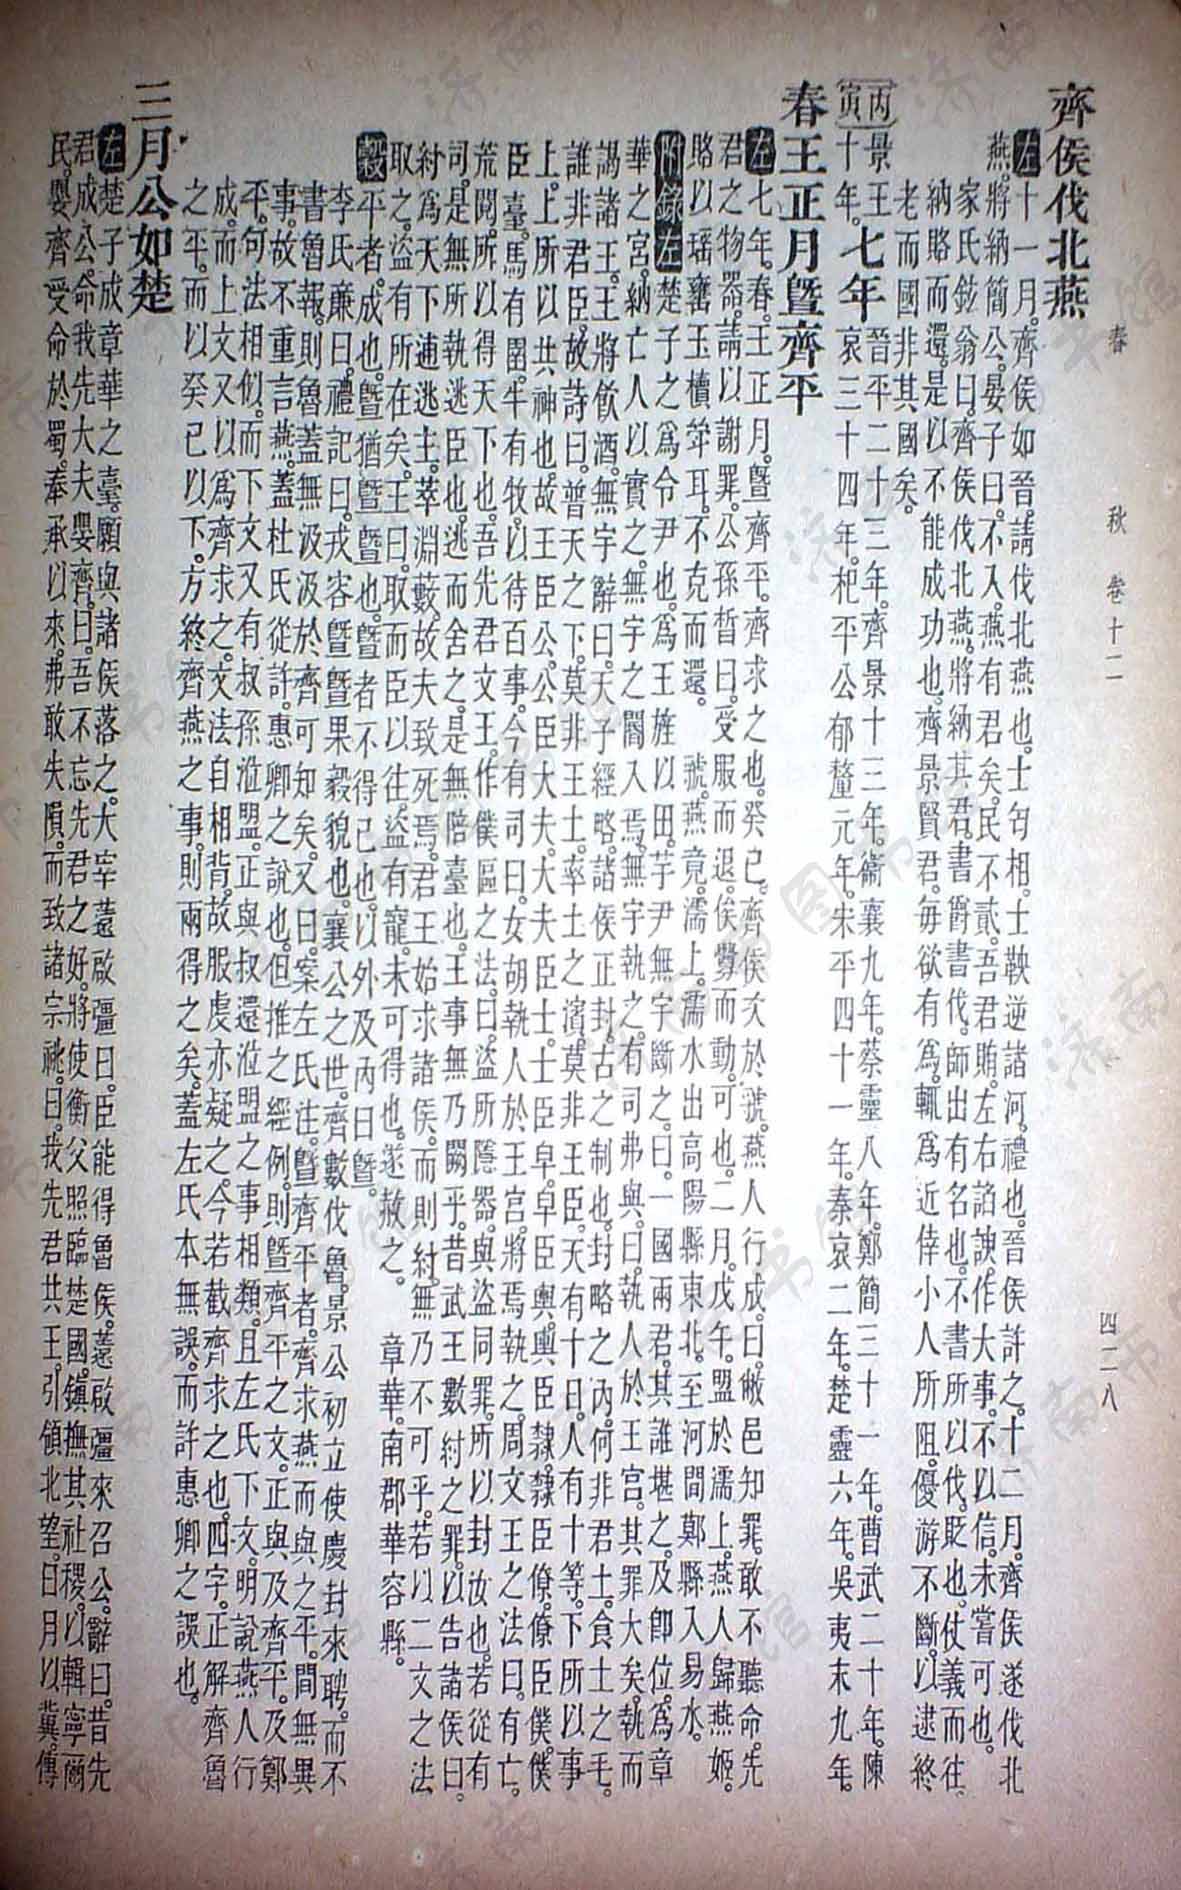 春　秋　卷十二　四二八
齊侯伐北燕
左十一月。齊侯如晉。請伐北燕也。士匄相。士鞅逆諸河。禮也。晉侯許之。十二月。齊侯遂伐北
燕。將納簡公。晏子曰。不入。燕有君矣。民不貳。吾君賄。左右諂諛。作大事不以信。未嘗可也。
家氏鉉翁曰。齊侯伐北燕。將納其君。書爵書伐。師出有名也。不書所以伐。貶也。仗義而往。
納賂而還。是以不能成功也。齊景賢君。每欲有爲。輒爲近倖小人所阻。優游不斷。以逮終
老而國非其國矣。
丙寅
景王七年晉平二十三年。齊景十三年。衞襄九年。蔡靈八年。鄭簡三十一年。曹武二十年。陳
十年。哀三十四年。杞平公郁釐元年。宋平四十一年。秦哀二年。楚靈六年。吳夷末九年。
春王正月曁齊平
左七年。春。王正月。曁齊平。齊求之也。癸巳。齊侯次於虢。燕人行成。曰。敝邑知罪。敢不聽命。先
君之物器。請以謝罪。公孫晳曰。受服而退。俟釁而動。可也。二月。戊午。盟於濡上。燕人歸燕姬。
賂以瑤罋玉櫝斚耳。不克而還。　虢。燕竟。濡上。濡水出高陽縣東北。至河間鄚縣入易水。
附錄左楚子之爲令尹也。爲王旌以田。芋尹無宇斷之。曰。一國兩君。其誰堪之。及卽位。爲章
華之宮。納亡人以實之。無宇之閽入焉。無宇執之。有司弗與。曰。執人於王宮。其罪大矣。執而
謁諸王。王將飮酒。無宇辭曰。天子經略。諸侯正封。古之制也。封略之內。何非君土。食土之毛。
誰非君臣。故詩曰。普天之下。莫非王土。率土之濱。莫非王臣。天有十日。人有十等。下所以事
上。上所以共神也。故王臣公。公臣大夫。大夫臣士。士臣皁。皁臣輿。輿臣隸。隸臣僚。僚臣僕。僕
臣臺。馬有圉。牛有牧。以待百事。今有司曰。女胡執人於王宮。將焉執之。周文王之法曰。有亡。
荒閱。所以得天下也。吾先君文王。作僕區之法。曰。盜所隱器。與盜同罪。所以封汝也。若從有
司。是無所執逃臣也。逃而舍之。是無陪臺也。王事無乃闕乎。昔武王數紂之罪。以告諸侯曰。
紂爲天下逋逃主。萃淵藪。故夫致死焉。君王始求諸侯。而則紂。無乃不可乎。若以二文之法
取之。盜有所在矣。王曰。取而臣以往。盜有寵。未可得也。遂赦之。　章華。南郡華容縣。
穀平者。成也。曁猶曁曁也。曁者不得已也。以外及內曰曁。
李氏廉曰。禮記曰。戎容曁曁。果毅貌也。襄公之世。齊數伐魯。景公初立。使慶封來聘。而不
書魯報。則魯蓋無汲汲於齊可知矣。又曰。案左氏注。曁齊平者。齊求燕而與之平。間無異
事。故不重言燕。蓋杜氏從許惠卿之說也。但推之經例。則曁齊平之文。正與及齊平。及鄭
平。何法相似。而下文又有叔孫涖盟。正與叔還涖盟之事相類。且左氏下文。明說燕人行
成。而上文又以爲齊求之。文法自相背。故服虔亦疑之。今若截齊求之也。四字。正解齊魯
之平。而以癸巳以下。方終齊燕之事。則兩得之矣。蓋左氏本無誤。而許惠卿之誤也。
三月公如楚
左楚子成章華之臺。願與諸侯落之。大宰薳啟彊曰。臣能得魯侯。薳啟彊來召公。辭曰。昔先
君成公。命我先大夫嬰齊。曰。吾不忘先君之好。將使衡父照臨楚國。鎮撫其社稷。以輯寧爾
民。嬰齊受命於蜀。奉承以來。弗敢失隕。而致諸宗祧。曰。我先君共王。引領北望。日月以冀。傳